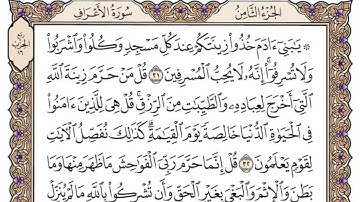 الجزء الثامن
سورة الأعراف
۞ يَٰبَنِيٓ ءَادَمَ خُذُواْ زِينَتَكُمۡ عِندَ كُلِّ مَسۡجِدٖ وَكُلُواْ وَٱشۡرَبُواْ
وَلَا تُسۡرِفُوٓاْۚ إِنَّهُۥ لَا يُحِبُّ ٱلۡمُسۡرِفِينَ ٣١ قُلۡ مَنۡ حَرَّمَ زِينَةَ ٱللَّهِ
ٱلَّتِيٓ أَخۡرَجَ لِعِبَادِهِۦ وَٱلطَّيِّبَٰتِ مِنَ ٱلرِّزۡقِۚ قُلۡ هِيَ لِلَّذِينَ ءَامَنُواْ
فِي ٱلۡحَيَوٰةِ ٱلدُّنۡيَا خَالِصَةٗ يَوۡمَ ٱلۡقِيَٰمَةِۗ كَذَٰلِكَ نُفَصِّلُ ٱلۡأٓيَٰتِ
لِقَوۡمٖ يَعۡلَمُونَ ٣٢ قُلۡ إِنَّمَا حَرَّمَ رَبِّيَ ٱلۡفَوَٰحِشَ مَا ظَهَرَ مِنۡهَا وَمَا
بَطَنَ وَٱلۡإِثۡمَ وَٱلۡبَغۡيَ بِغَيۡرِ ٱلۡحَقِّ وَأَن تُشۡرِكُواْ بِٱللَّهِ مَا لَمۡ يُنَزِّلۡ